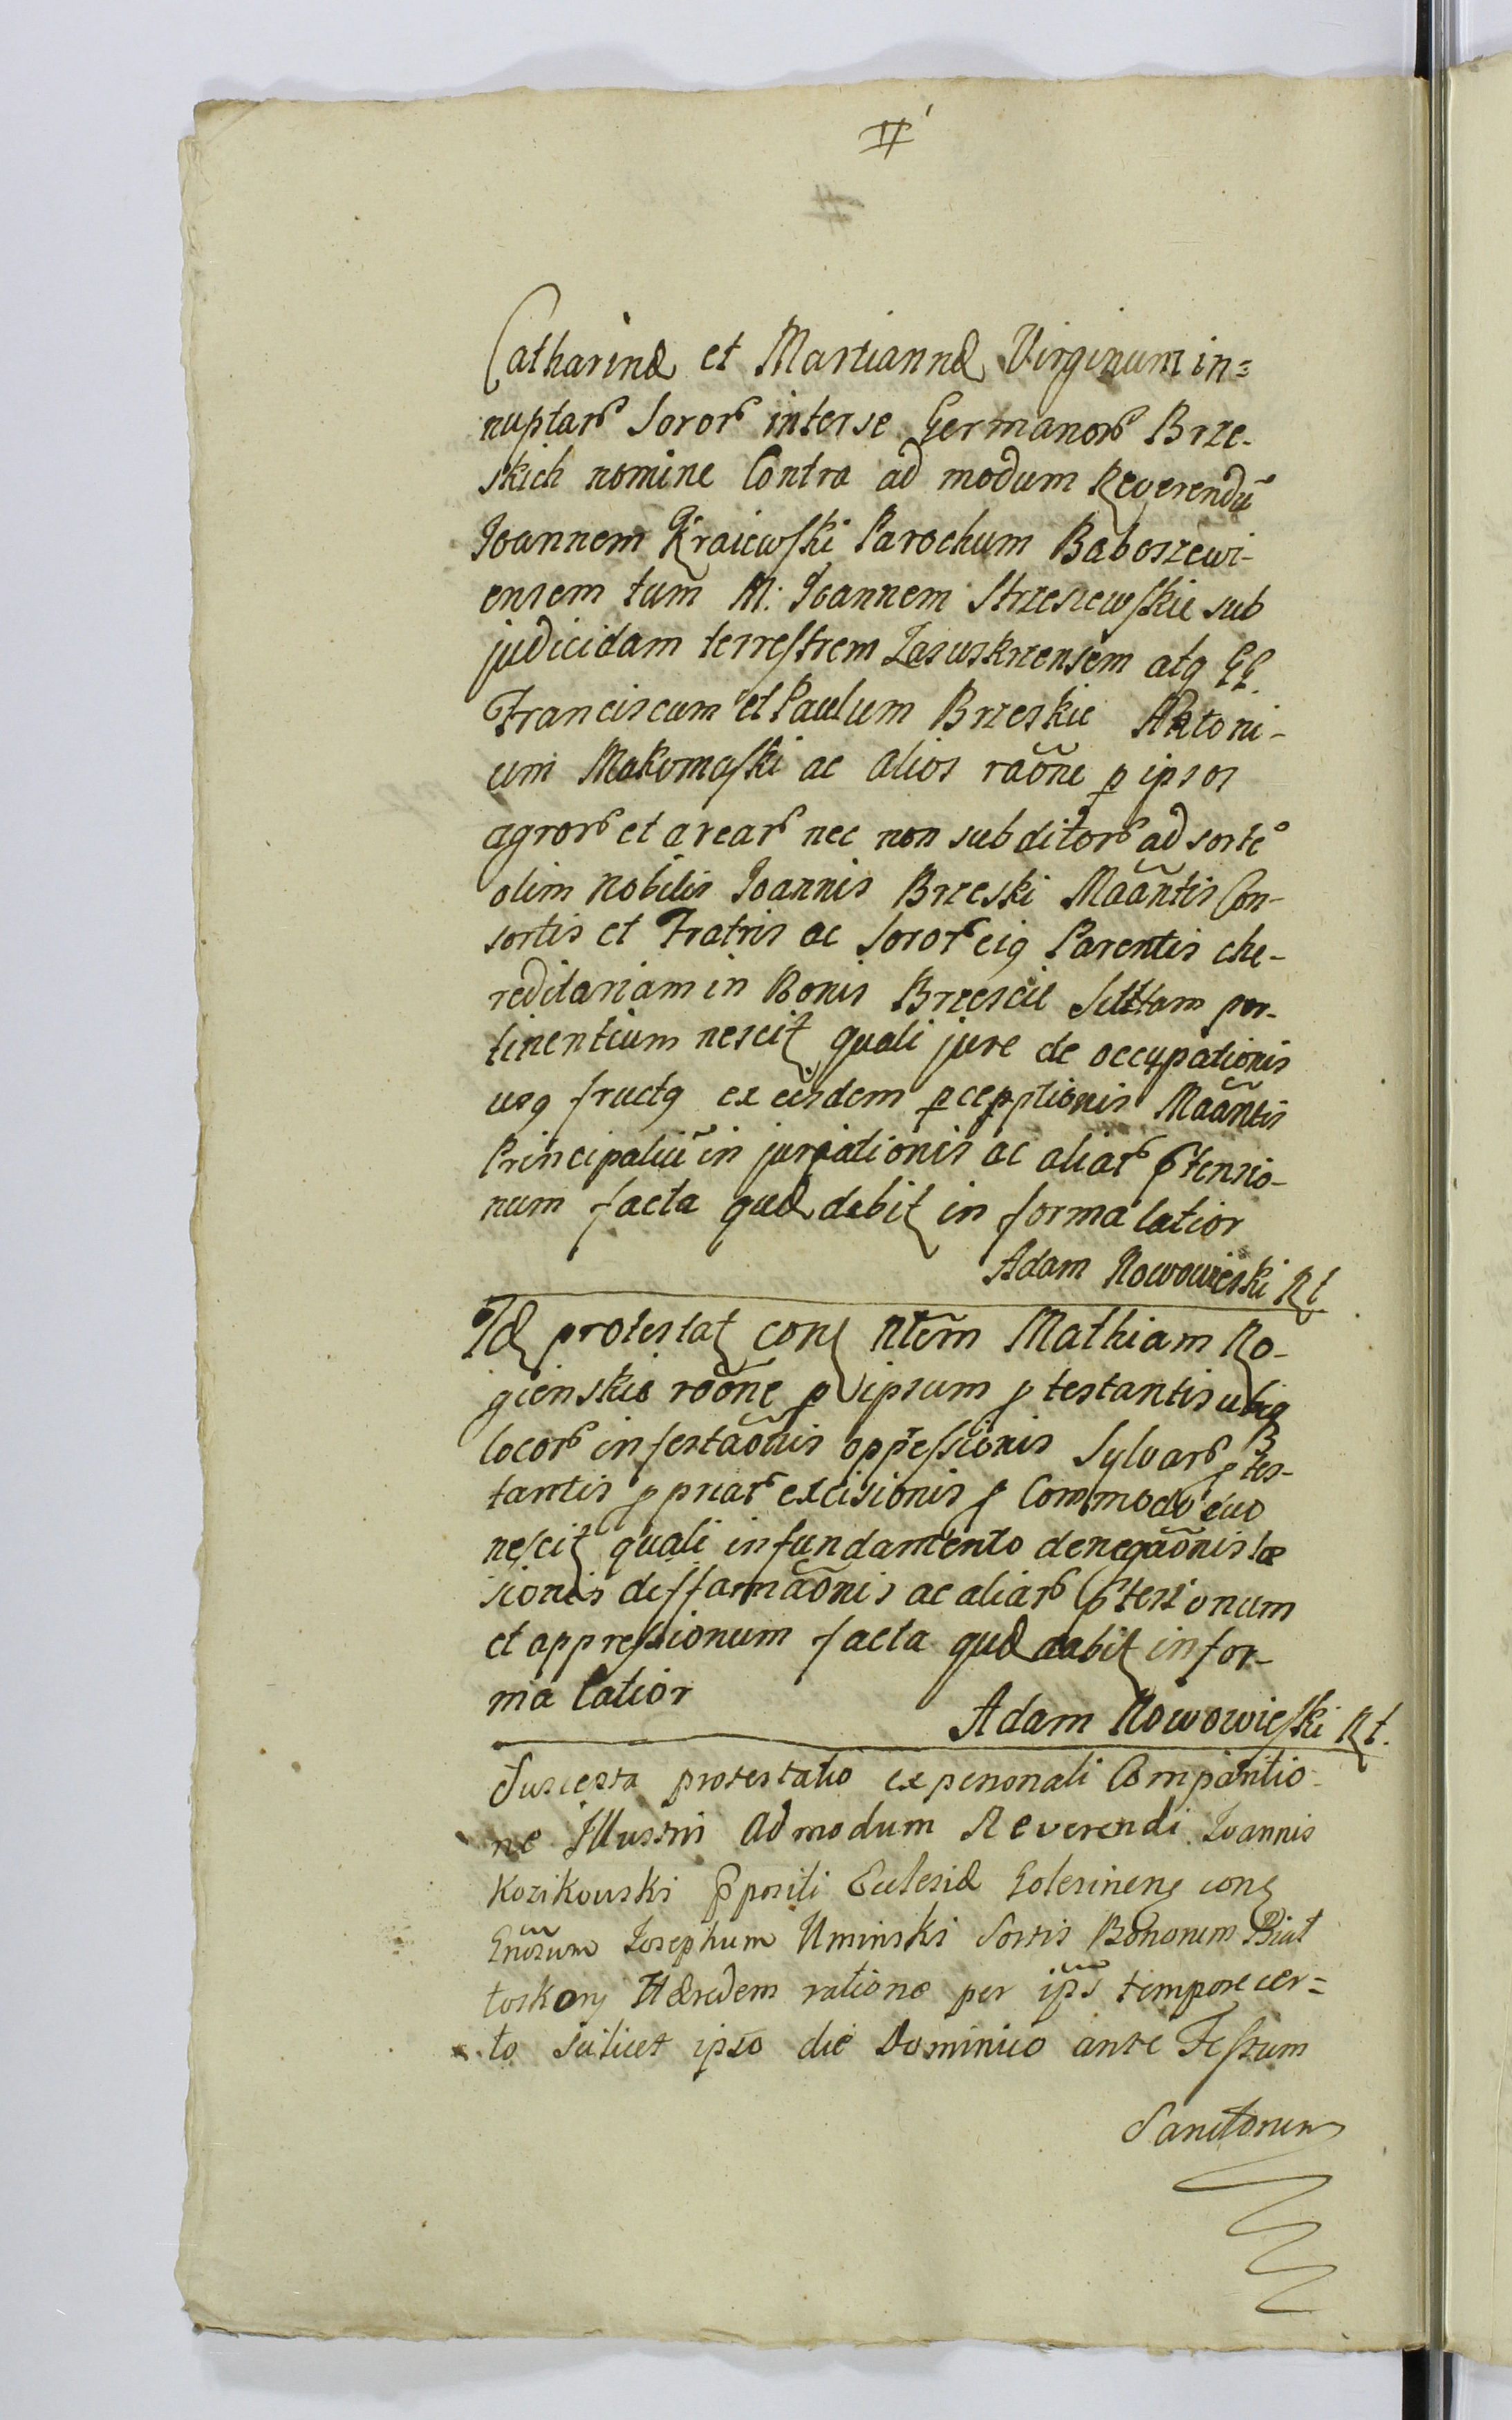 II
Catharinæ et Martiannæ Virginum in=
nuptarũ Sororũ interse Germanorũ Brze-
skich nomine Contra ad modum Reverendũ
Joannem Kraiewski Parochum Baboszewi-
ensem tum M: Joannem Strzeszewskie sub
judicidam terrestrem Zaswskrzensem atq GG.
Franciscum et Paulum Brzeskie Antoni-
um Makomaski ac alios raõne p ipsos
agrorũ et arearũ nec non subditorũ ad sorte
olim Nobilis Joannis Brzeski Maãntis Con-
sortis et Fratris ac Soror eiq Parentis he-
reditariam in Bonis Brzescie Sittam per-
tinentium nescit quali jure de occupationis
usq fructq ex eisdem pcepptionis Maãntis
Principaliũ in juriationis ac aliar ptensio-
num facta quæ dabit in forma latior
Adam Nowowieski Rt
Id protestat con Ntẽm Mathiam Ro-
gienskie raõne p ipsum ptestantis ubiq
locorũ infestaõnis oppressionis Sylvarũ ptes-
tantis ppriar excisionis p Commodo suo
nescit quali in fundamento denegaõnis læ
sionis diffamaõnis ac aliarũ ptensionum
et oppressionum facta quæ dabit in for-
ma latior
Adam Nowowieski Rt.
Suscepta protestatio ex personali Comparitio-
ne Illustris Admodum Reverendi Joannis
Kozikowski Ppositi Ecclesiæ Golesinen con
Gnõsum Josephum Uminski Sortis Bonorum Biał
toskory Hæredem ratione per ips tempore cer=
to scilicet ipso die Dominico ante Festum
Sanctorum